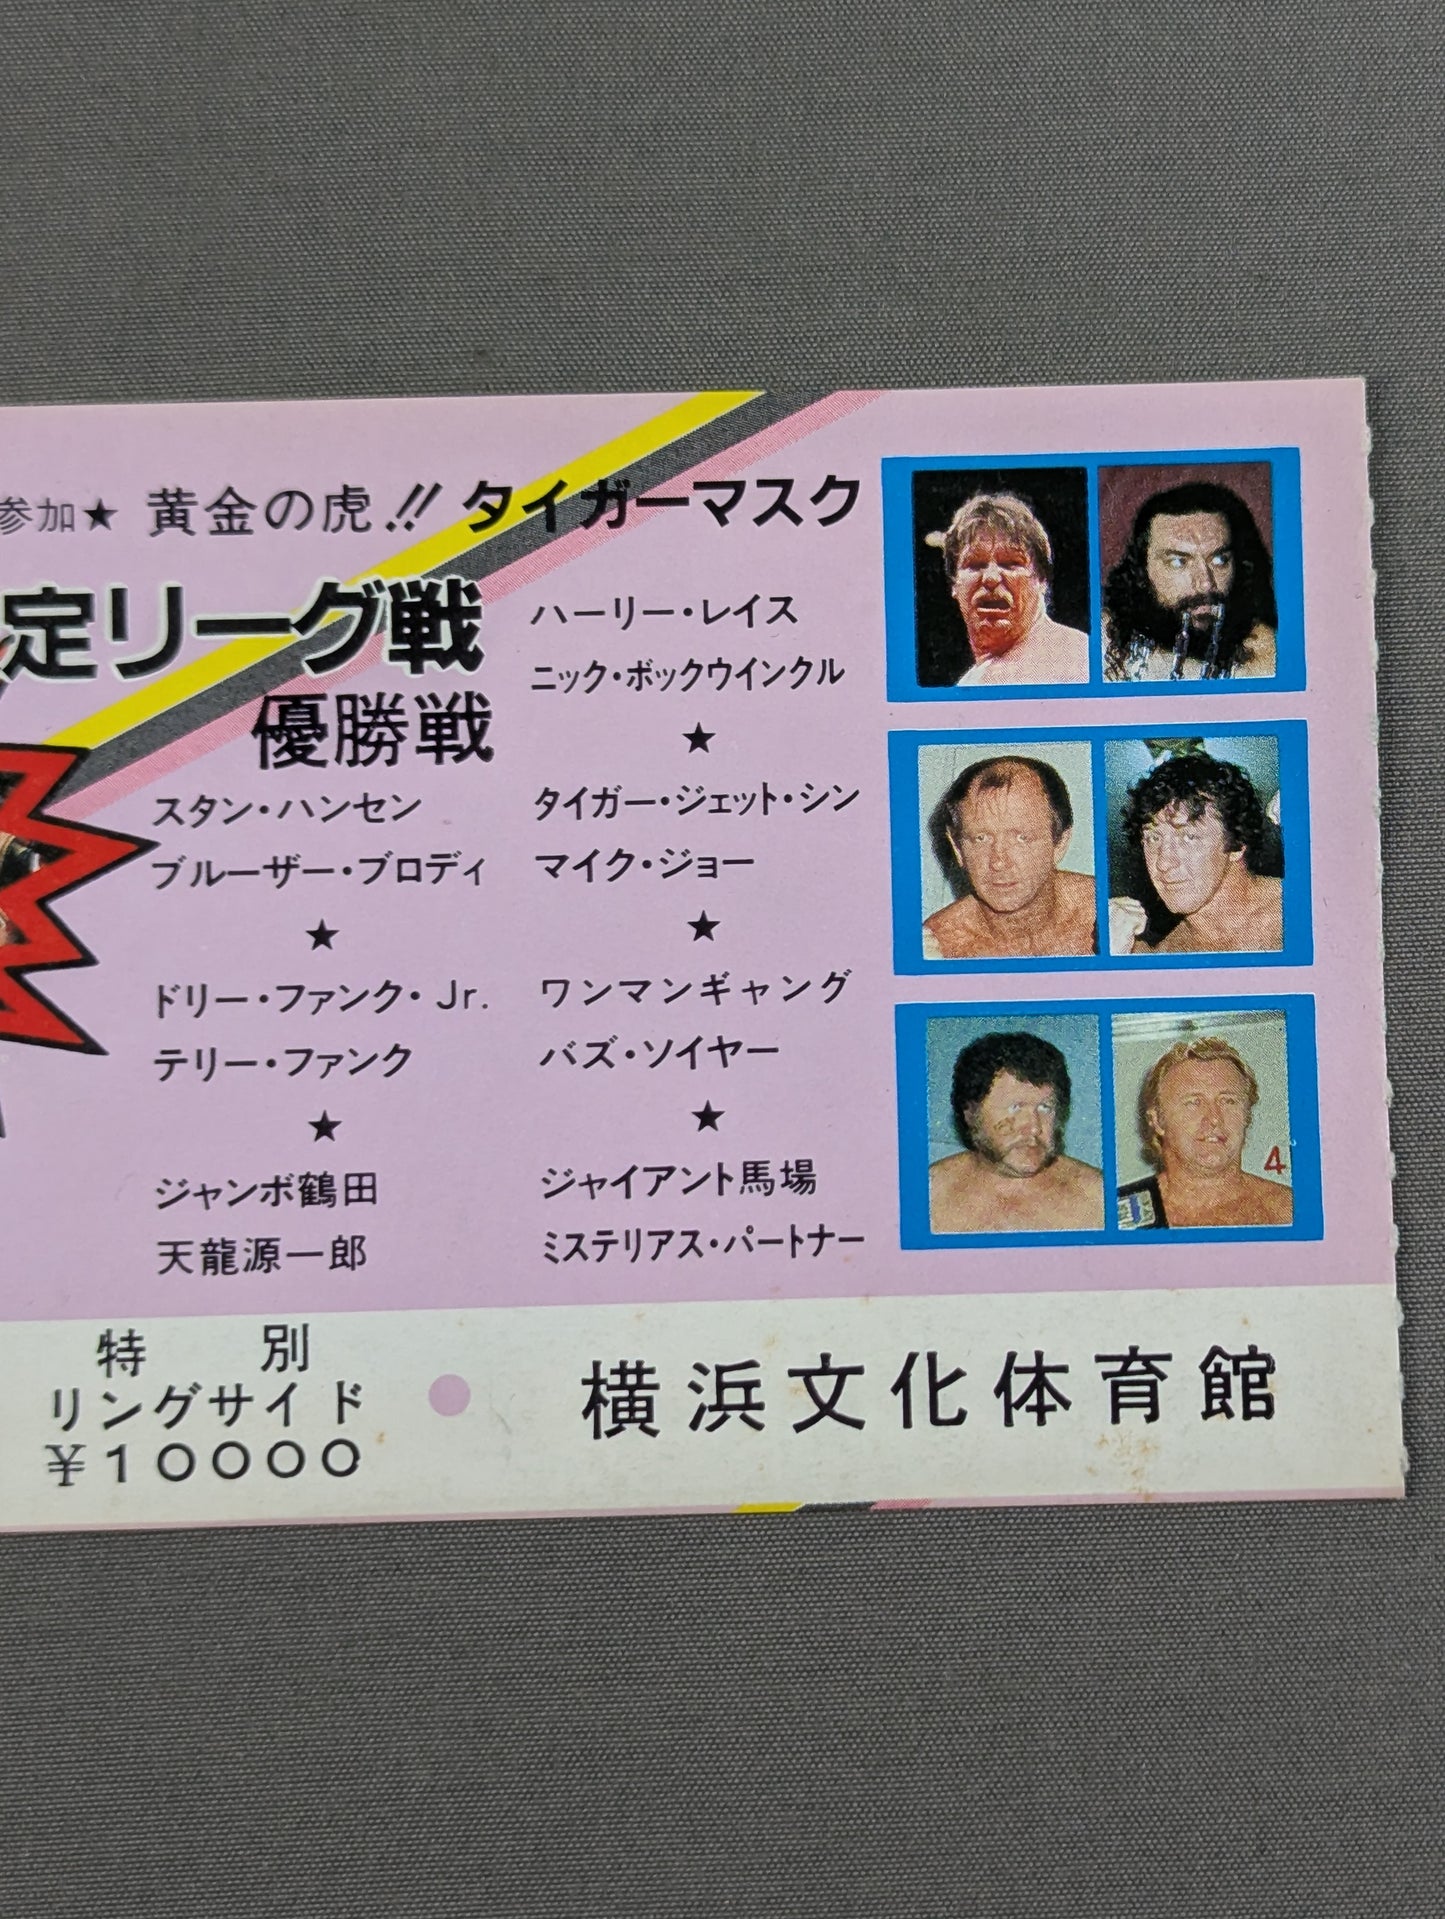 参加★ 黄金の虎!! タイガーマスク
定リーグ戦
優勝戦
スタン・ハンセン
ブルーザー・ブロディ
★
ドリー・ファンク・Jr.
テリー・ファンク
★
ジャンボ鶴田
天龍源一郎
ハーリー・レイス
ニック・ボックウインクル
★
タイガー・ジェット・シン
マイク・ジョー
★
ワンマンギャング
バズ・ソイヤー
★
ジャイアント馬場
ミステリアス・パートナー
4
特別
リングサイド
¥10000
横浜文化体育館